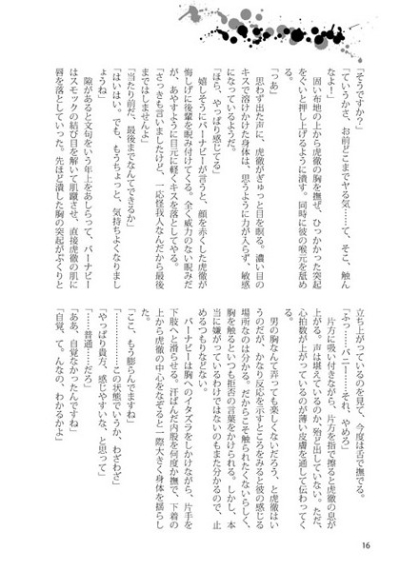 「そうですか？」
「ていうかさ、お前どこまでヤる気……て、そこ、触ん
なよ！」
　固い布地の上から虎徹の胸を撫ぜ、ひっかかった突起
をぐいと押し上げるように潰す。同時に彼の喉元を舐め
る。
「っあ」
　思わず出た声に、虎徹がぎゅっと目を瞑る。濃い目の
キスで溶けかけた身体は、思うように力が入らず、敏感
になっているようだ。
「ほら、やっぱり感じてる」
　嬉しそうにバーナビーが言うと、顔を赤くした虎徹が
悔しげに後輩を睨み付けてくる。全く威力のない睨みだ
が、あやすように目元に軽くキスを落としてやる。
「さっきも言いましたけど、一応怪我人なんだから最後
まではしませんよ」
「当たり前だ、最後までなんてできるか」
「はいはい。でも、もうちょっと、気持ちよくなりまし
ょうね」
　隙があると文句をいう年上をあしらって、バーナビー
はスモックの結び目を解いて肌蹴させ、直接虎徹の肌に
唇を落としていった。先ほど潰した胸の突起がぷくりと
立ち上がっているのを見て、今度は舌で撫でる。
「ふっ……バニー……それ、やめろ」
　片方に吸い付きながら、片方を指で擦ると虎徹の息が
上がる。声は堪えているのか、殆ど出していない。ただ、
心拍数が上がっているのが薄い皮膚を通して伝わってく
る。
　男の胸なんて弄っても楽しくないだろう、と虎徹はい
うのだが、かなり反応を示すところをみると彼の感じる
場所なのは分かる。だからこそ触られたくないらしく、
胸を触るといつも拒否の言葉をかけられる。しかし、本
当に嫌がっているわけではないのもまた分かるので、止
めるつもりなどない。
　バーナビーは胸へのイタズラをしかけながら、片手を
下肢へと滑らせる。汗ばんだ内股を何度か撫で、下着の
上から虎徹の中心をなぞると一際大きく身体を揺らし
た。
「ここ、もう膨らんでますね」
「……この状態でいうか、わざわざ」
「やっぱり貴方、感じやすいな、と思って」
「……普通……だろ」
「ああ、自覚なかったんですね」
「自覚、て。んなの、わかるかよ」
16